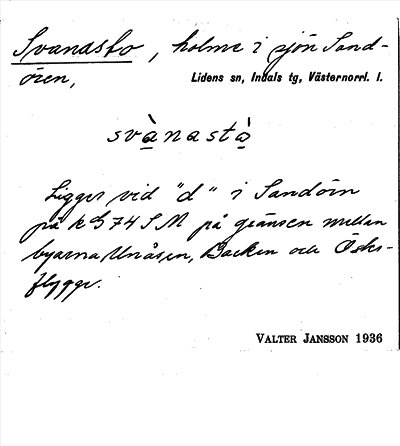 Svanasto, holme i sjön Sand-
ören,
Lidens sn, Indals tg, Västernorrl. l.
svànastà
Ligger vid "d" i Sandören
på k G74SM på gränsen mellan
byarna Unåsen, Backen och Östs-
flygge.
VALTER JANSSON 1936